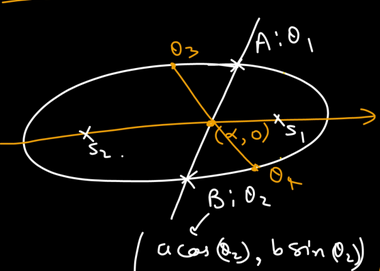 θ3
A:θ1
(α,0)
S1
S2.
θ4
B:θ2
(acos(θ2), bsin(θ2))